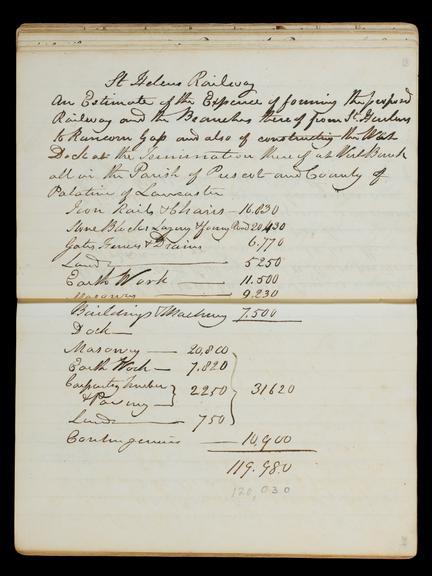 St Helens Railway
An Estimate of the Expence of forming the proposed
Railway and the Branches thereof from St Hellens
to Runcorn Gap and also of constructing the Wet
Dock at the Termination thereof at West Bank
all in the Parish of Prescot and County of
Palatine of Lancaster
Iron Rails & Chairs — 16.830
Stone Blocks Laying & forming Road 20,430
Gates, Fences & Drains 6,770
Lands 5250
Earth Work 11.500
Masonry 9.230
Buildings & Machinery 7.500
Dock —
Masonry — 20,800
Earth Work — 7.820
Carpentry timber & Paving 2250 31620
Lands 750
Contingencies — 10,900
119.980
120,030